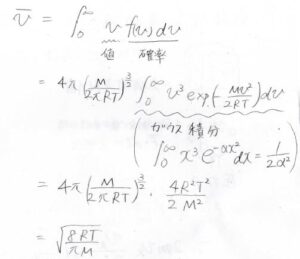 v̄ = ∫₀^∞ v f(v) dv
値 確率
= 4π (M/2πRT)^{3/2} ∫₀^∞ v³ exp(-Mv²/2RT) dv
ガウス積分
(∫₀^∞ x³ e^{-αx²} dx = 1/2α²)
= 4π (M/2πRT)^{3/2} · 4R²T²/2M²
= √(8RT/πM)